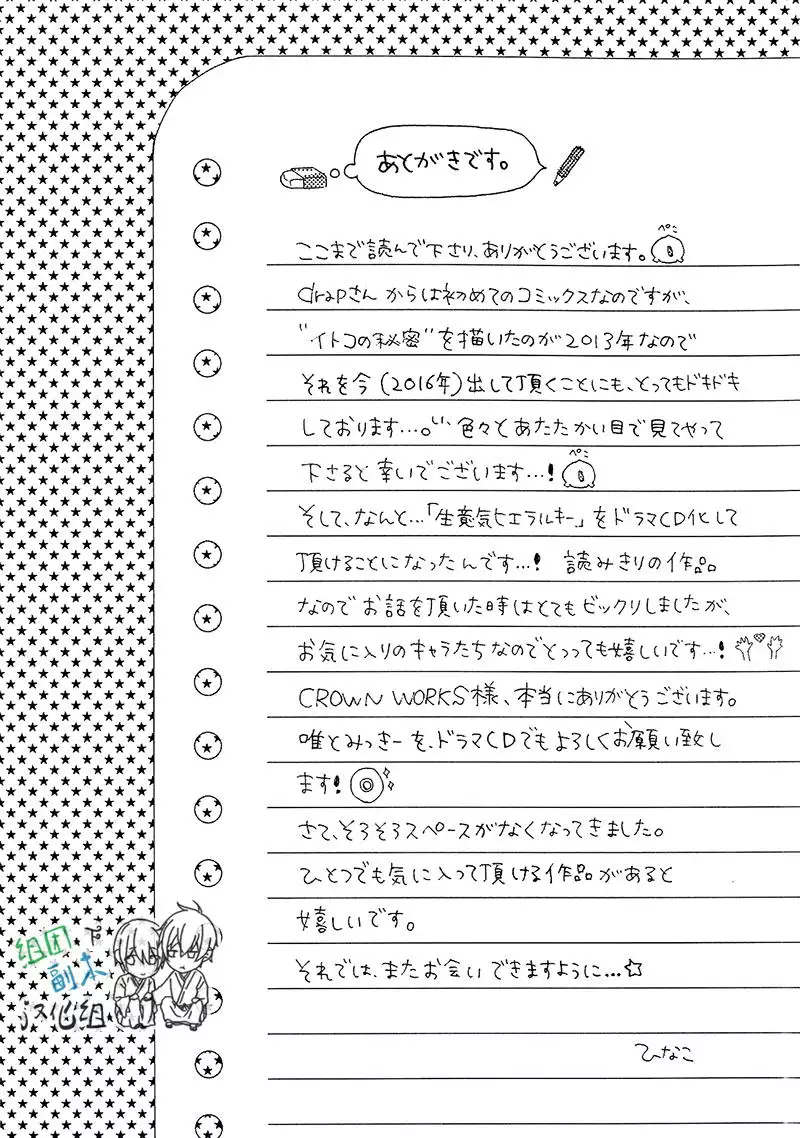 あとがきです。
ぺこ
ここまで読んで下さり、ありがとうございます。
drapさんからは初めてのコミックスなのですが、
"イトコの秘密"を描いたのが2013年なので
それを今(2016年)出して頂くことにも、とってもドキドキ
しております…。色々とあたたかい目で見てやって
下さると幸いでございます…!
ぺこ
そして、なんと…「生意気ヒエラルキー」をドラマCD化して
頂けることになったんです…! 読みきりの作品
なのでお話を頂いた時はとてもビックリしましたが、
お気に入りのキャラたちなのでとっっても嬉しいです…!
CROWN WORKS様、本当にありがとうございます。
唯とみっきーを、ドラマCDでもよろしくお願い致し
ます!
さて、そろそろスペースがなくなってきました。
ひとつでも気に入って頂ける作品があると
嬉しいです。
それでは、またお会いできますように…☆
ひなこ
组团下
副本
汉化组